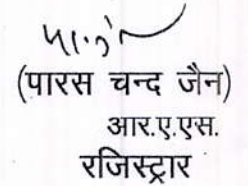 (पारस चन्द जैन)
आर.ए.एस.
रजिस्ट्रार